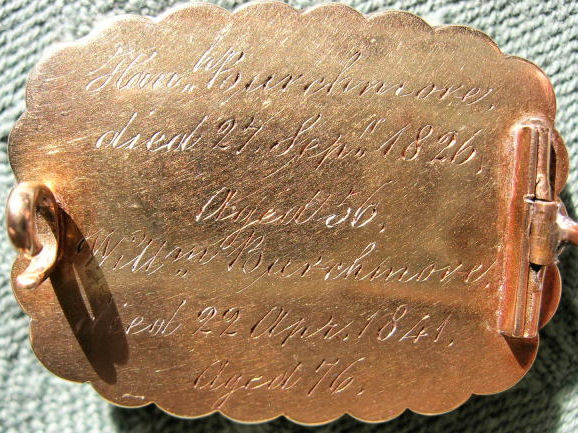 Hanh. Burchmore,
died 27, Sepr. 1826,
Aged 56,
Willm. Burchmore,
died 22 Apr. 1841,
Aged 76,